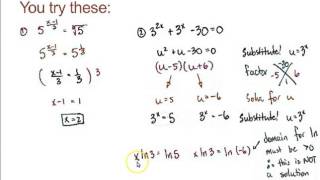 You try these:
① 5^((x-1)/3) = ∛5
5^((x-1)/3) = 5^(1/3)
((x-1)/3 = 1/3)3
x-1 = 1
x=2
② 3^(2x) + 3^x -30=0
u² + u -30 = 0
(u-5)(u+6)
u=5 u=-6
3^x=5 3^x=-6
x ln 3 = ln 5 x ln 3 = ln (-6)
Substitute! u=3^x
Factor -30 -5 6 1
Solve for u
Substitute! u=3^x
domain for ln
must be >0
∴ this is NOT
a solution